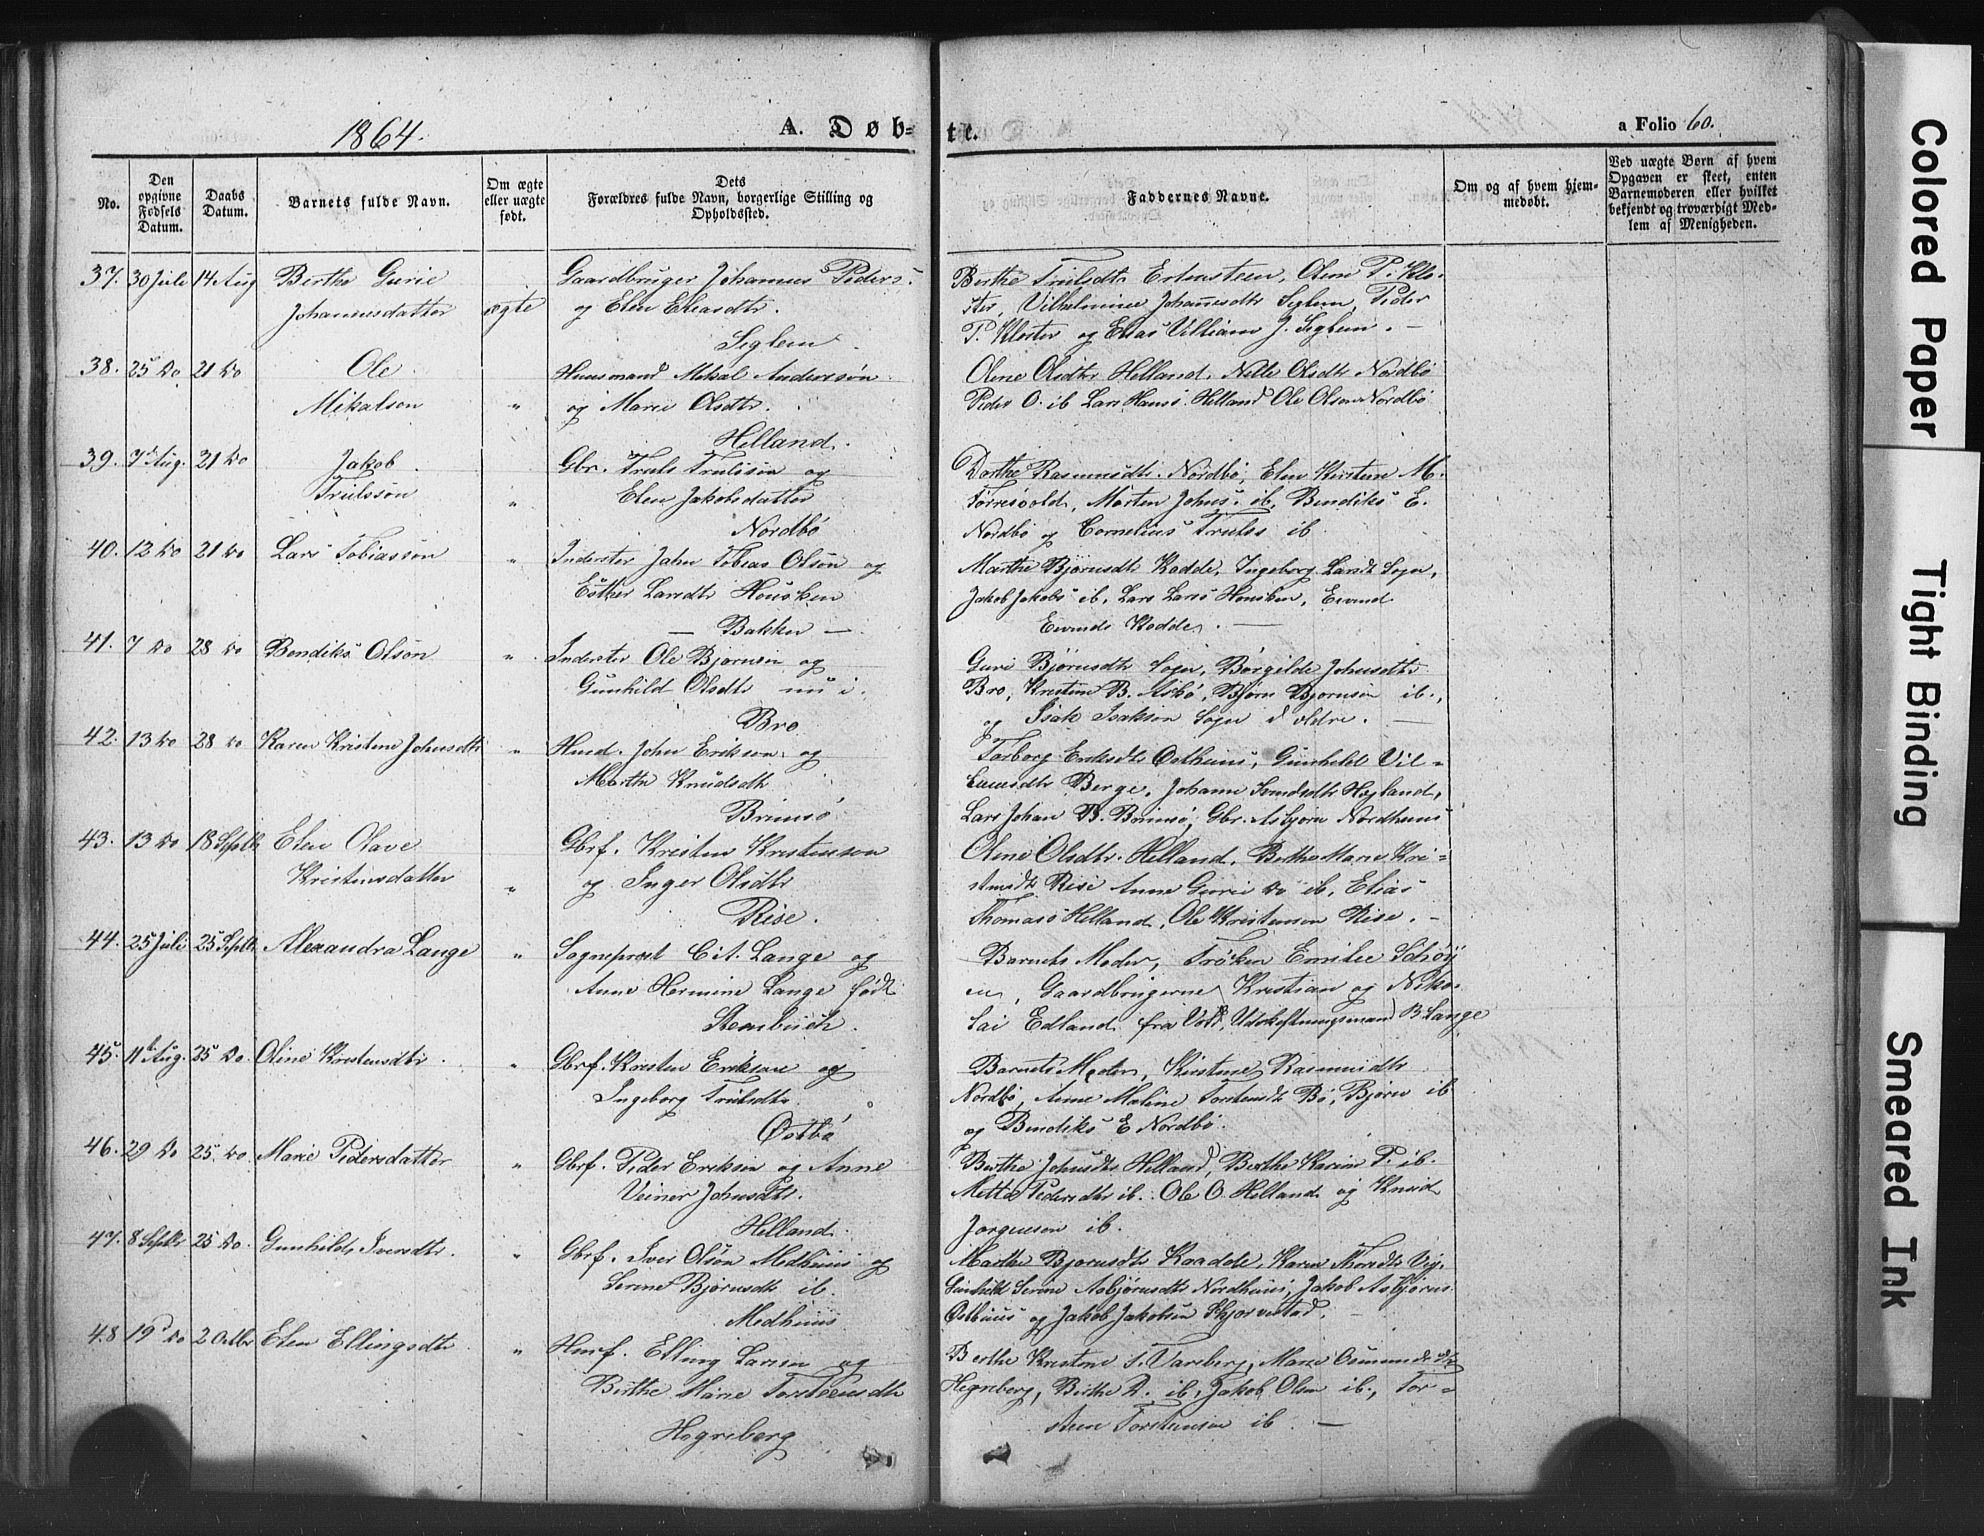 1864.
A. Døb-
te.
a Folio 60.
No.
Den opgivne Fødsels Datum.
Daabs Datum.
Barnets fulde Navn.
Om ægte eller uægte født.
Dets Forældres fulde Navn, borgerlige Stilling og Opholdssted.
Faddernes Navne.
Om og af hvem hjemmedøbt.
Ved uægte Børn af hvem Opgaven er skeet, enten Barnemoderen eller hvilket bekjendt og troværdigt Medlem af Menigheden.
37. 30 Juli 14 Aug Berthe Gurie
Johannesdatter ægte
Gaardbruger Johannes Peders.
og Elen Eliasdtr.
Seglem
Berthe Trulsdtr Olene P. Klo-
ster, Vilhelmine Johannesdtr Seglem, Peder
P. Kloster og Elias Villiam J. Seglem. —
38. 25 do 21 do Ole
Mikalson "
Huusmand Mikal Andersøn
og Marie Olsdtr.
Helland.
Olene Olsdtr Helland, Nelle Olsdtr Nordbö
Peder O. ib Lars Hans. Helland Ole Olson Nordbö
39. 7 Aug. 21 do Jakob
Trulsson "
Gbr. Truls Trulsön og
Elen Jakobsdatter
Nordbö
Dorthe Rasmusdtr. Nordbö, Elen Kirstine M.
Torresvold, Morten Johns. ib, Bendiks E.
Nordbö og Cornelius Truls ib
40. 12 do 21 do Lars Tobiasson "
Inderster John Tobias Olsön og
Esther Larsdtr Housken
— Bakken —
Marthe Bjørnsdtr Kadde, Ingeborg Larsdt Sogn,
Jakob Jakobs ib, Lars Lars Housken, Eivind
Eivinds Kodde. —
41. 7 do 28 do Bendiks Olson "
Inderster Ole Bjørnsen og
Gunhild Olsdtr nu i
Bro
Guri Bjørnsdtr Sogn, Børgilde Johnsdtr
Bro, Kristen B. Askö, Bjørn Bjørnsen ib.,
og Isak Isakson Sogn d ældre. —
42. 13 do 28 do Karen Kristine Johnsdtr "
Husd. John Erikson og
Marthe Knudsdtr
Brimsö
Torborg Eriksdtr Osthuus, Gunhild Vil-
lumsdtr Berge, Johanne Hegland,
Lars Johan B. Brimsö, Gbr. Asbjørn Nordhuus
43. 13 do 18 Septb Elen Olave
Kristensdatter "
Gbrf. Kristen Kristenson
og Inger Olsdtr
Rise.
Oline Olsdtr. Helland, Berthe Marie Kri-
stensdtr Rise Anne Gurie do ib, Elias
Thomas Helland, Ole Kristensen Rise. —
44. 25 Juli 25 Septb Alexandra Lange "
Sogneprest C. A. Lange og
Anne Hermine Lange født
Stenbuch.
Barnets Moder, Frøken Emilie Schöy
en, Gaardbrugerne Kristian og Niko-
lai Edland fra Udskiftningsmand B Lange
45. 11 Aug. 25 do. Oline Kristensdtr. "
Gbrf. Kristen Erikson og
Ingeborg Trulsdtr.
Østbö
Barnets Moder, Kirstine Rasmusdtr
Nordbö, Anne Maline Torstensdt Bö, Bjørn ib
og Bendiks E Nordbö.
46. 29 do 25 do Marie Pedersdatter "
Gbrf. Peder Erikson og Anne
Veiner Johnsdtr.
Helland.
Berthe Johnsdtr Helland, Berthe Karine P. ib.
Mette Pedersdtr ib. Ole O. Helland og Knud
Jorgensen ib.
47. 8 Septbr 25 do. Gunhilde Iversdtr. "
Gbrf. Iver Olsön Medhuus og
Serine Bjørnsdtr ib.
Medhuus
Marthe Bjørnsdtr Kaadde, Karen Thorsdtr Vig,
Gunhild Serine Asbjørnsdtr Nordhuus, Jakob Asbjørns
Osthuus og Jakob Jakobsen Skjorvestad. —
48 19 do 2 Octbr Elen Ellingsdtr "
Hmf. Elling Larsen og
Berthe Marie Torstensdtr
Hegreberg
Berthe Kristine T. Vareberg, Marie Osmundsdtr
Hegreberg, Berthe R. ib, Jakob Olsen ib., Tor-
sten Torstensen ib —
Colored Paper
Tight Binding
Smeared Ink